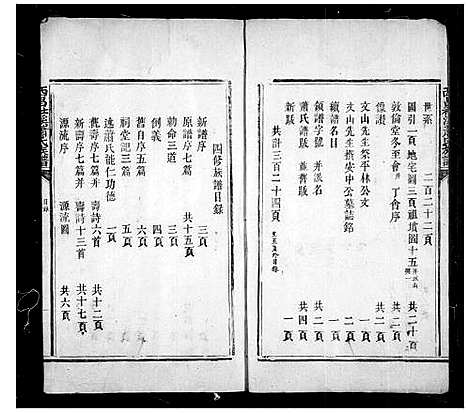 四修族譜目錄
新譜序 三頁
原譜序七篇 共十五頁
勅命三道 三頁
創義 四頁
舊自序五篇 六頁
祠堂記三篇 五頁
述蕭氏能仁功德 一頁
舊壽序七篇并壽詩六首 共十二頁
新壽序七篇并壽詩十三首 共十七頁
源流序 源流圖 共六頁
目錄
世系 二百二十二頁
圖引一頁地宅圖三頁祖墳圖十五 共二十頁
敦倫堂冬至會丁會序 共二頁
經譜 共二頁
文山先生祭平林公文 一頁
文山先生撰安中公墓誌銘 共二頁
續譜名目 一頁
領譜字號并派名 共二頁
蕭氏譜跋并舊跋 共四頁
新跋 一頁
共計三百二十四頁